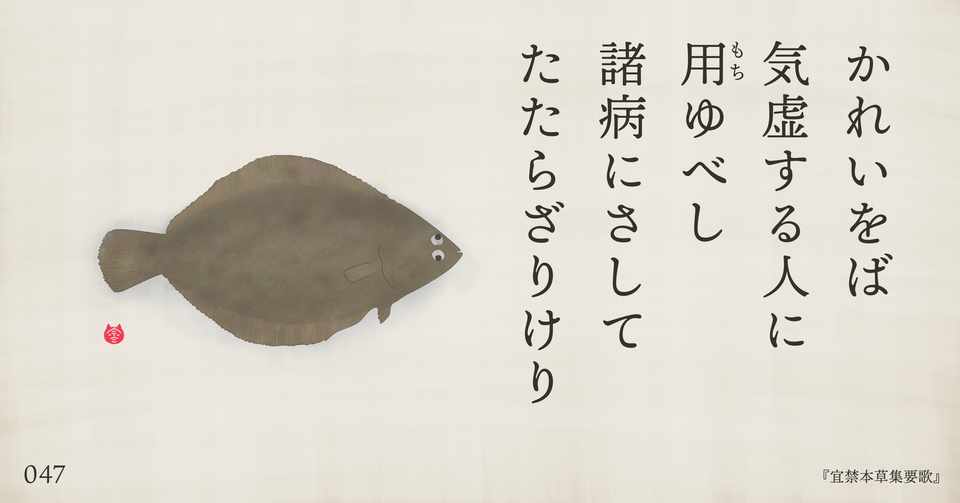 かれいをば
気虚する人に
用ゆべし
もち
諸病にさして
たたらざりけり
047
『宜禁本草集要歌』